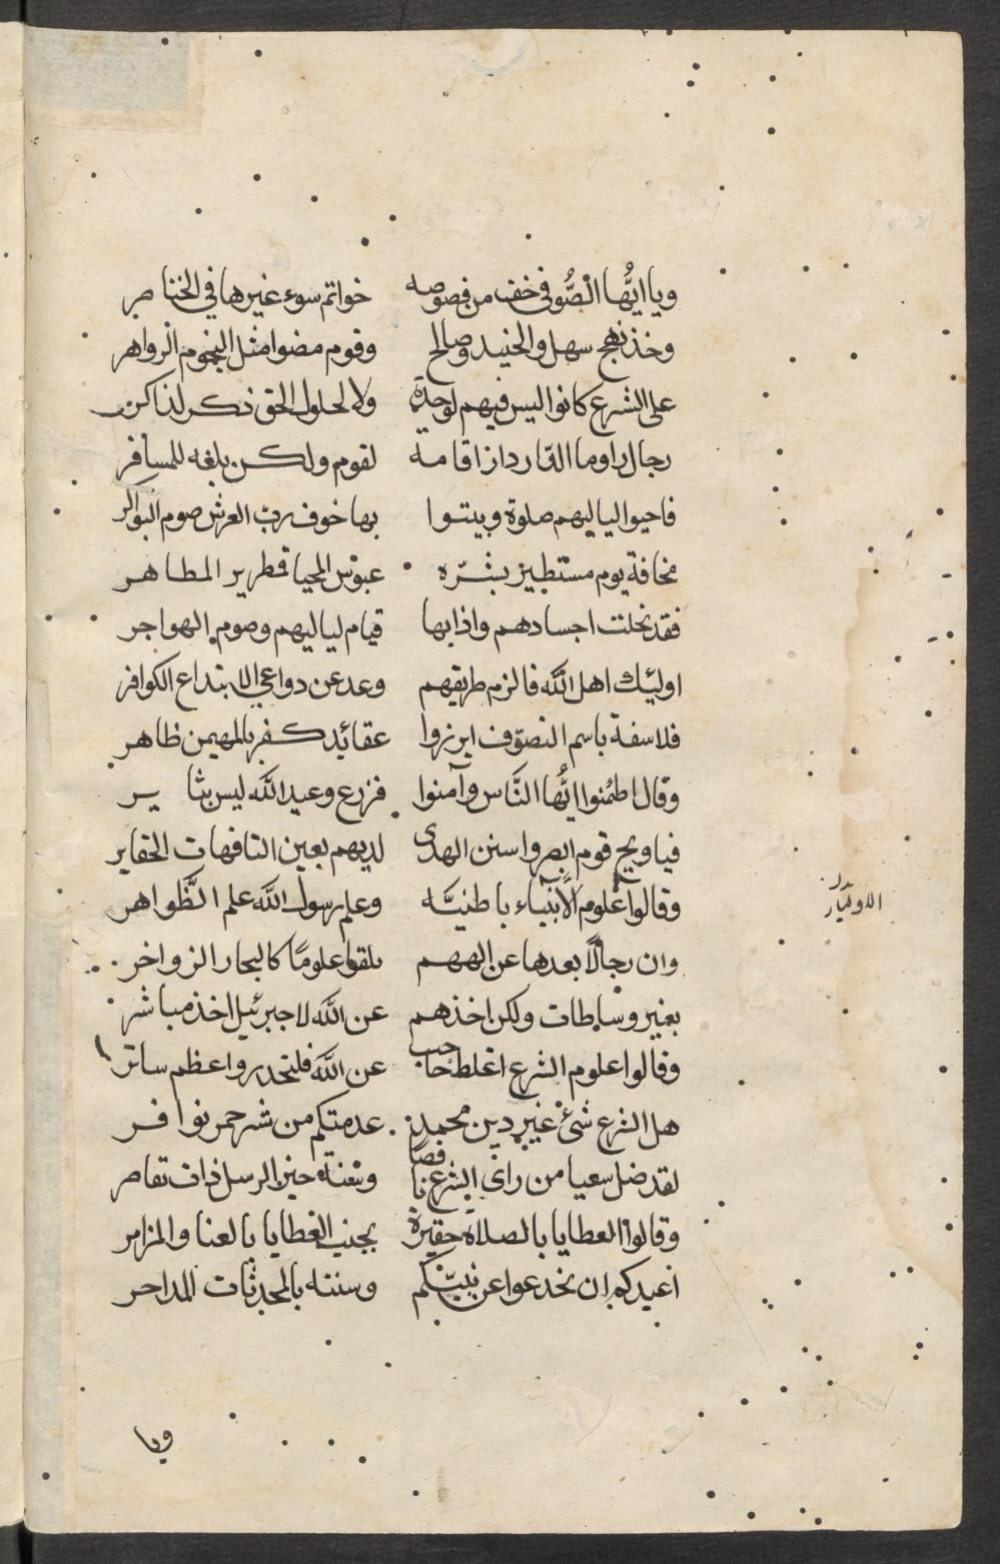 ويا ايُّها الصُّوفي خف من فصوصه خواتم سوء غيرها في الخناصر
وخذ نهج سهل والجنيد وصالح وقوم مضوا مثل النجوم الزواهر
على الشرع كانوا ليس فيهم لوحدة ولا لحلول الحق ذكر لذاكر
رجال راوما الدّار دار اقامة لقوم ولكن بلغه للمسافر
فاحيوا لياليهم صلوة وبيتوا بها خوف ربّ العرش صوم البواكر
مخافة يوم مستطير بشرّه عبوس المحيا قمطرير المظاهر
فقد نحلت اجسادهم واذابها قيام لياليهم وصوم الهواجر
اولئك اهل الله فالزم طريقهم وعد عن دواعي الابتداع الكوافر
فلاسفة باسم التصوّف ابرزوا عقائد كفر بالمهيمن ظاهر
وقال اطمئنوا ايُّها النَّاس وآمنوا فزرع وعيد الله ليس بثا ير
فيا ويح قوم ابصروا سنن الهدى لديهم بعين التافهات الحقاير
وقالوا علوم الأنبياء باطنيَّه وعلم رسول الله علم الظَّواهر
وان رجالاً بعدها عن الههم تلقوا علومًا كالبحار الزواخر
بغير وساطات ولكن اخذهم عن الله لا جبرئيل اخذ مباشر
وقالوا علوم الشرع اغلط حاجب عن الله فلتحذروا عظم ساتر
هل الشرع شئ غير دين محمد عدمتكم من شر حمر نوافر
لقد ضل سعيا من راى الشرع ناقصًا وسنة خير الرسل ذات تقاصر
وقالوا العطايا بالصلاه حقيرة بجنب العطايا بالغنا والمزامر
اعيدكم ان تخدعوا عن نبيّكم وسنته بالمحدثات المداحر
ويا